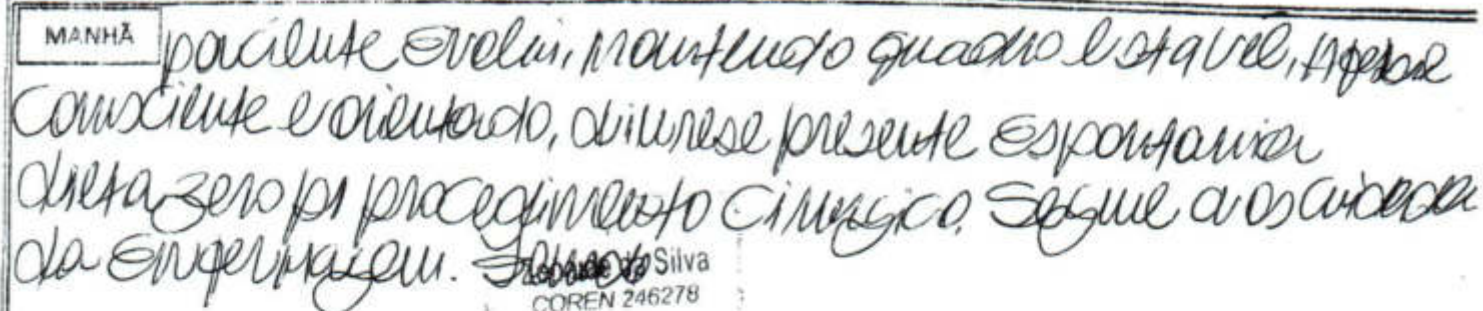 MANHÃ
paciente evolui, mantendo quadro estavel,
consciente e orientado, diurese presente espontanea
dieta zero p/ procedimento cirurgico. Segue aos cuidados
da enfermagem.
Silva
COREN 246278